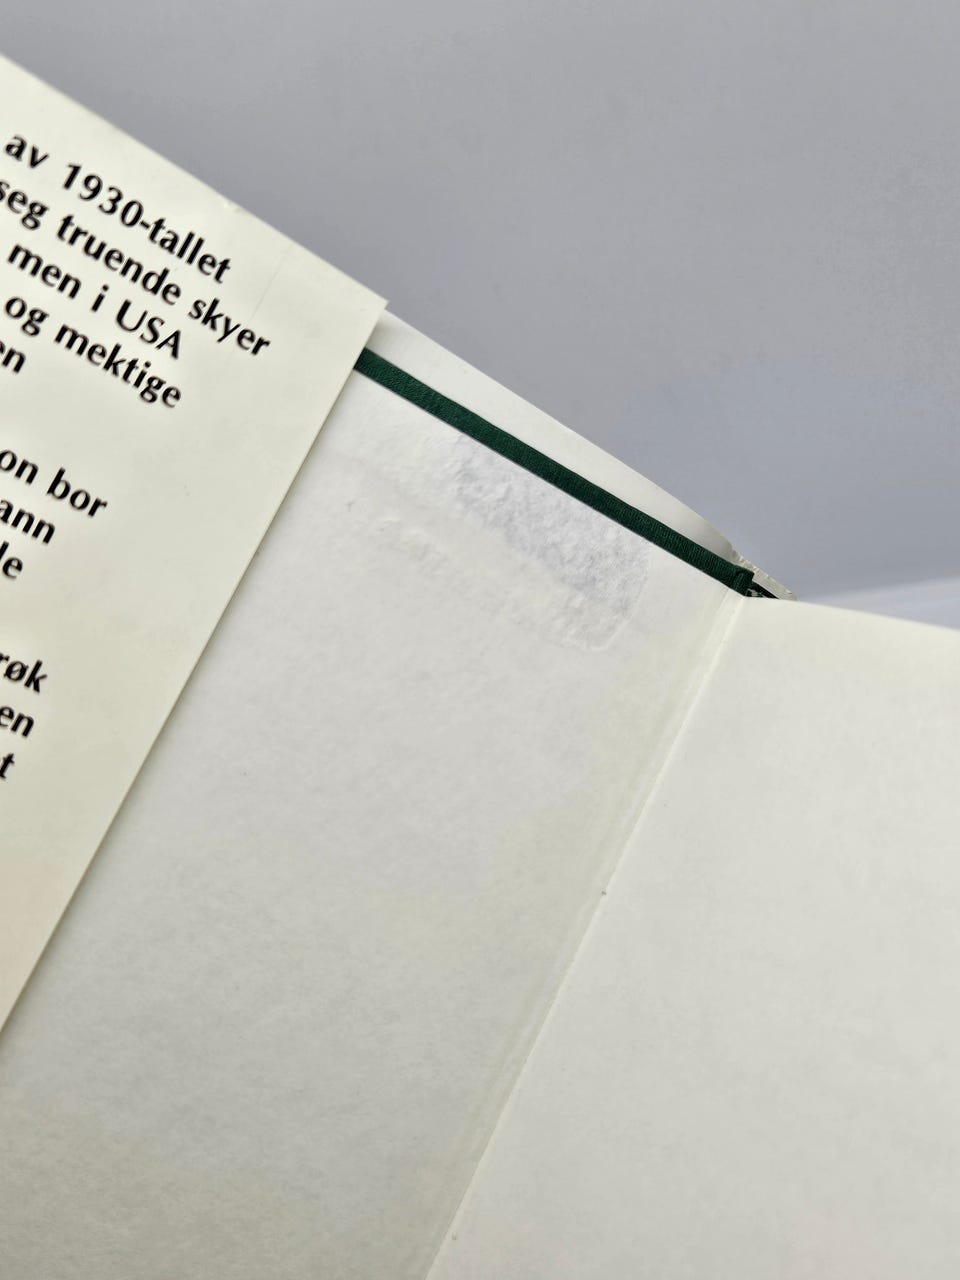 av 1930-tallet
seg truende skyer
men i USA
og mektige
en
on bor
ann
le
røk
en
t